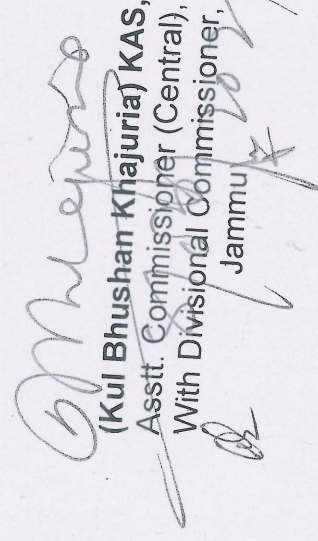 (Kul Bhushan Khajuria) KAS,
Asstt. Commissioner (Central),
With Divisional Commissioner,
Jammu